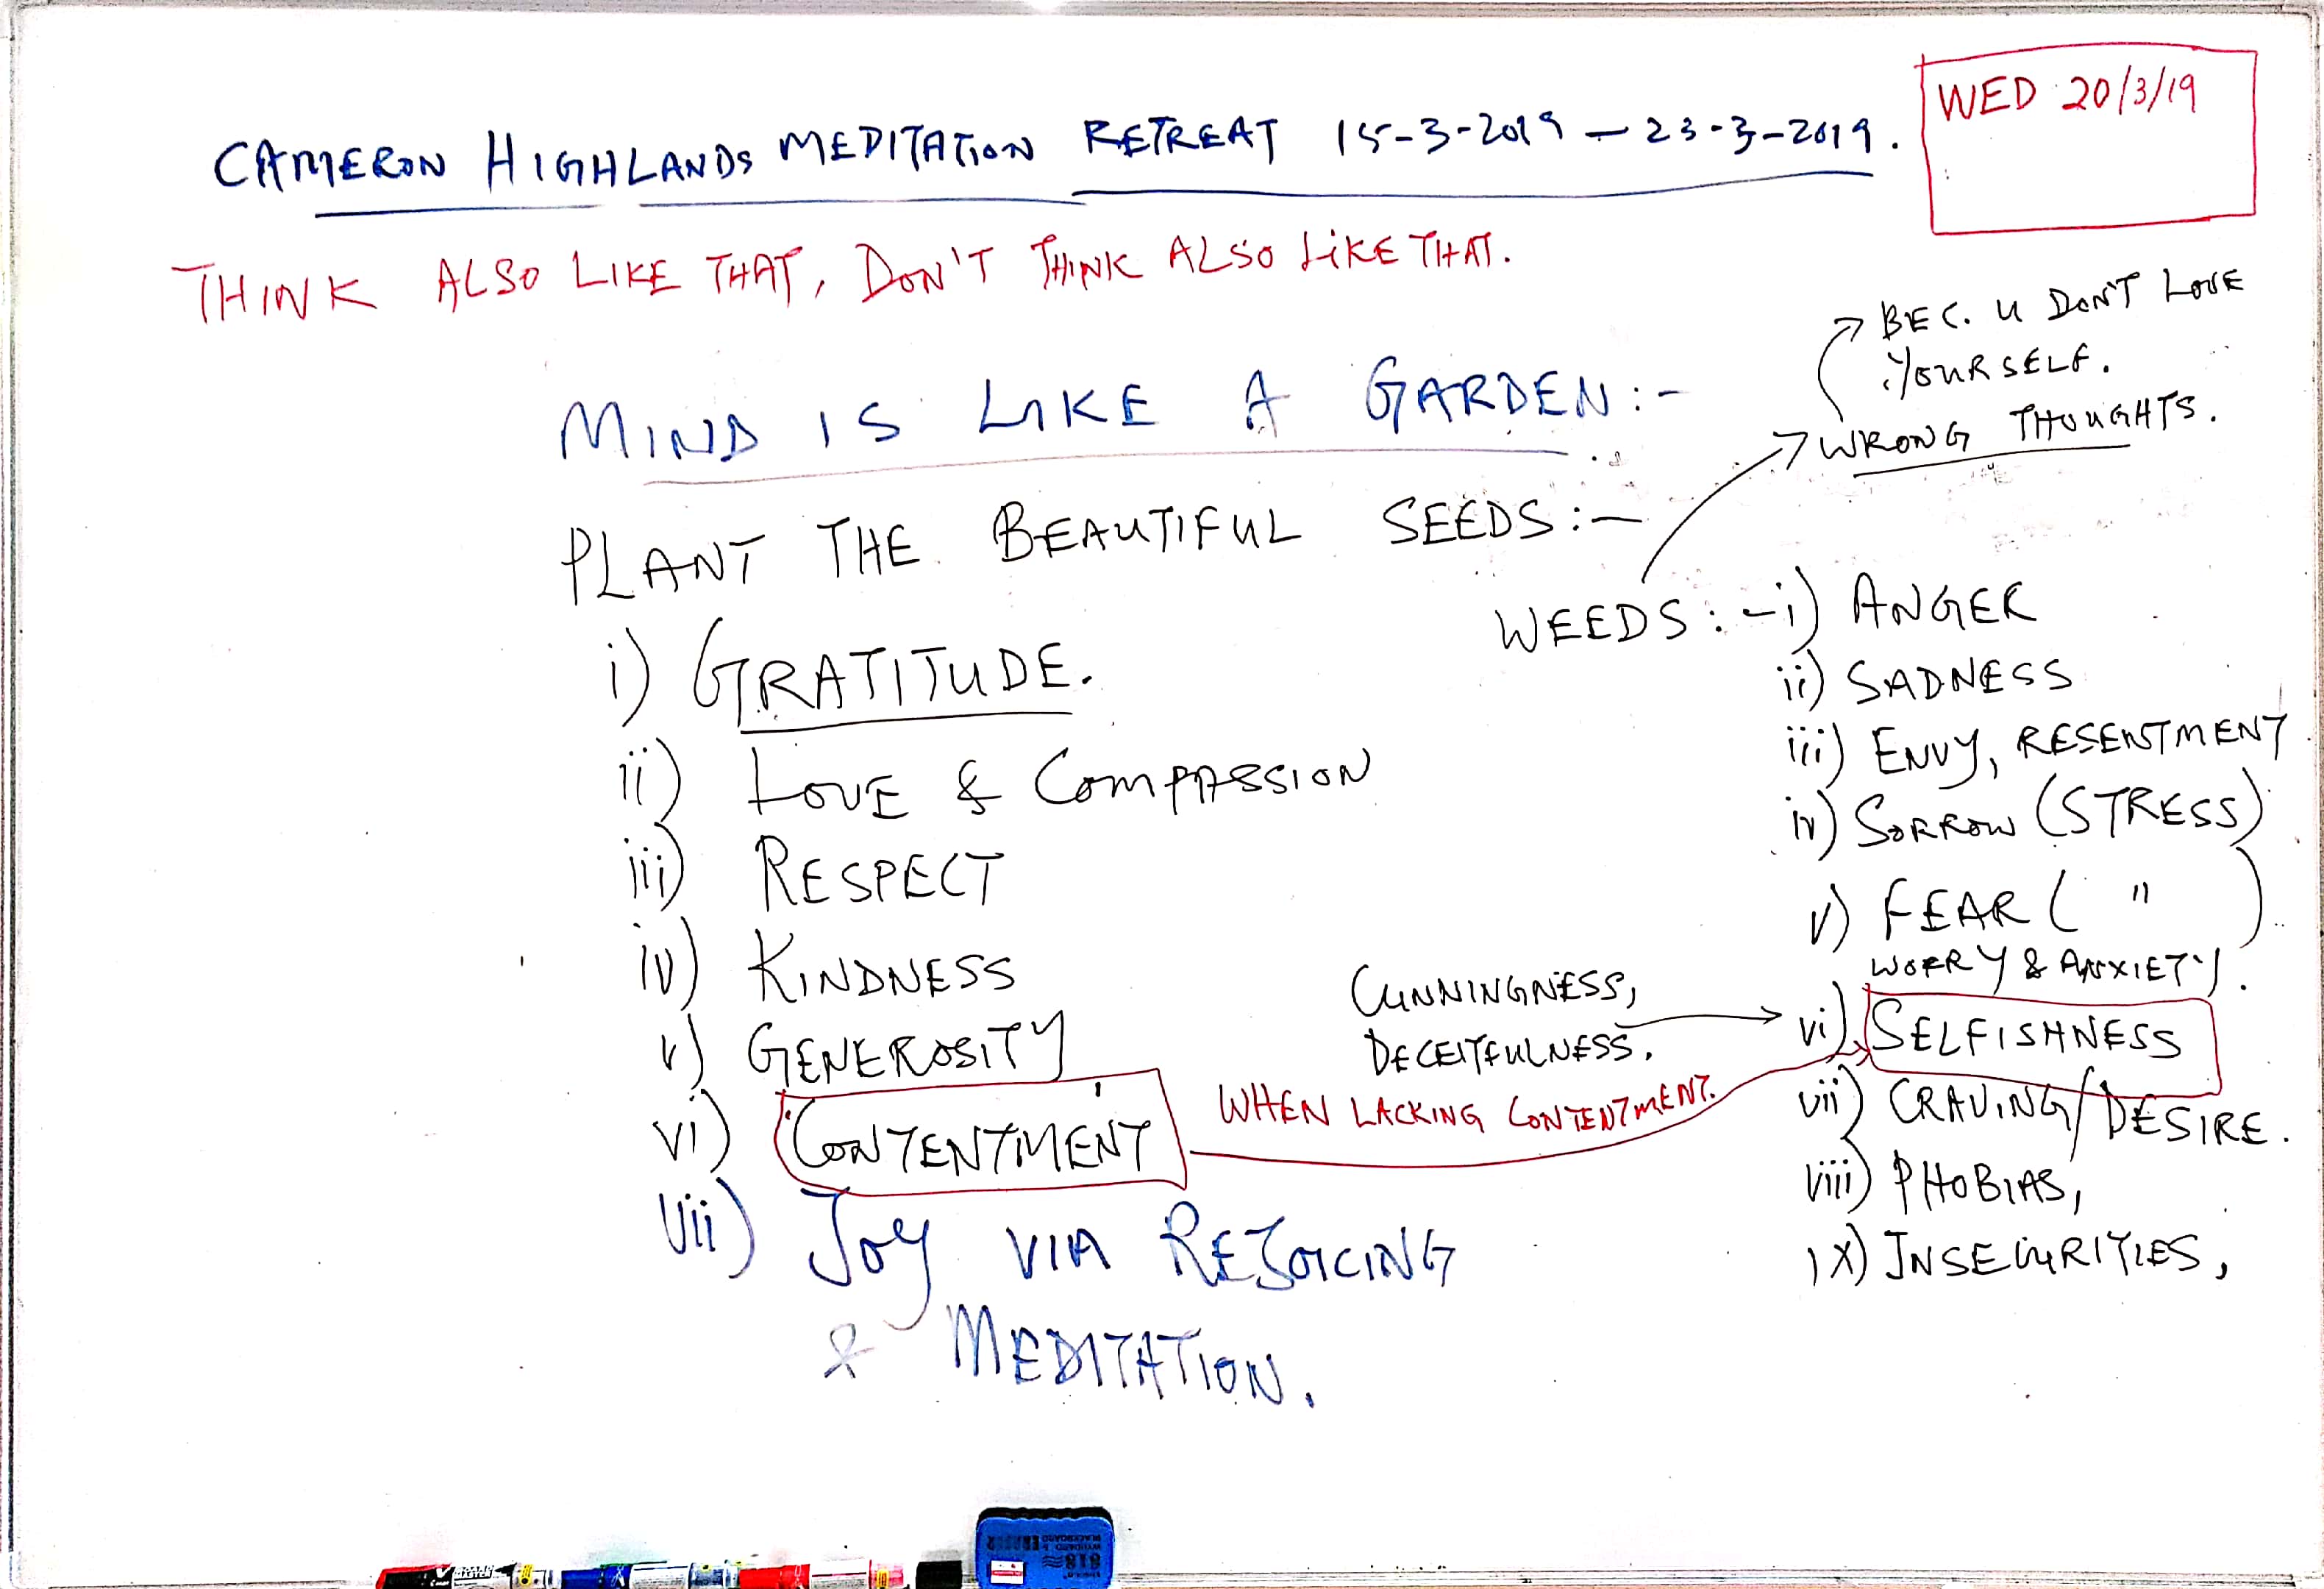 WED 20/3/19
CAMERON HIGHLANDS MEDITATION RETREAT 15-3-2019 — 23-3-2019.
THINK ALSO LIKE THAT, DON'T THINK ALSO LIKE THAT.
BEC. U DON'T LOVE
YOURSELF.
WRONG THOUGHTS.
MIND IS LIKE A GARDEN:-
PLANT THE BEAUTIFUL SEEDS:-
i) GRATITUDE.
ii) LOVE & COMPASSION
iii) RESPECT
iv) KINDNESS
v) GENEROSITY
vi) CONTENTMENT
vii) JOY VIA REJOICING
& MEDITATION.
WHEN LACKING CONTENTMENT.
CUNNINGNESS,
DECEITFULNESS.
WEEDS:- i) ANGER
ii) SADNESS
iii) ENVY, RESENTMENT
iv) SORROW (STRESS)
v) FEAR ( " )
WORRY & ANXIETY.
vi) SELFISHNESS
vii) CRAVING/DESIRE.
viii) PHOBIAS,
ix) INSECURITIES,
818